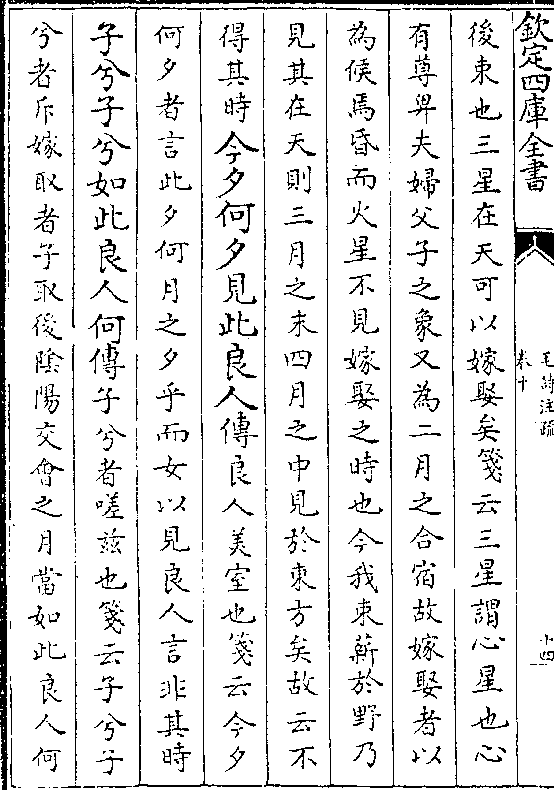 欽定四庫全書
毛詩注疏
卷十
十四
後束也三星在天可以嫁娶矣箋云三星謂心星也心
有尊卑夫婦父子之象又為二月之合宿故嫁娶者以
為候焉昏而火星不見嫁娶之時也今我束薪於野乃
見其在天則三月之末四月之中見於東方矣故云不
得其時今夕何夕見此良人傳良人美室也箋云今夕
何夕者言此夕何月之夕乎而女以見良人言非其時
子兮子兮如此良人何傳子兮者嗟茲也箋云子兮子
兮者斥嫁取者子取後陰陽交會之月當如此良人何